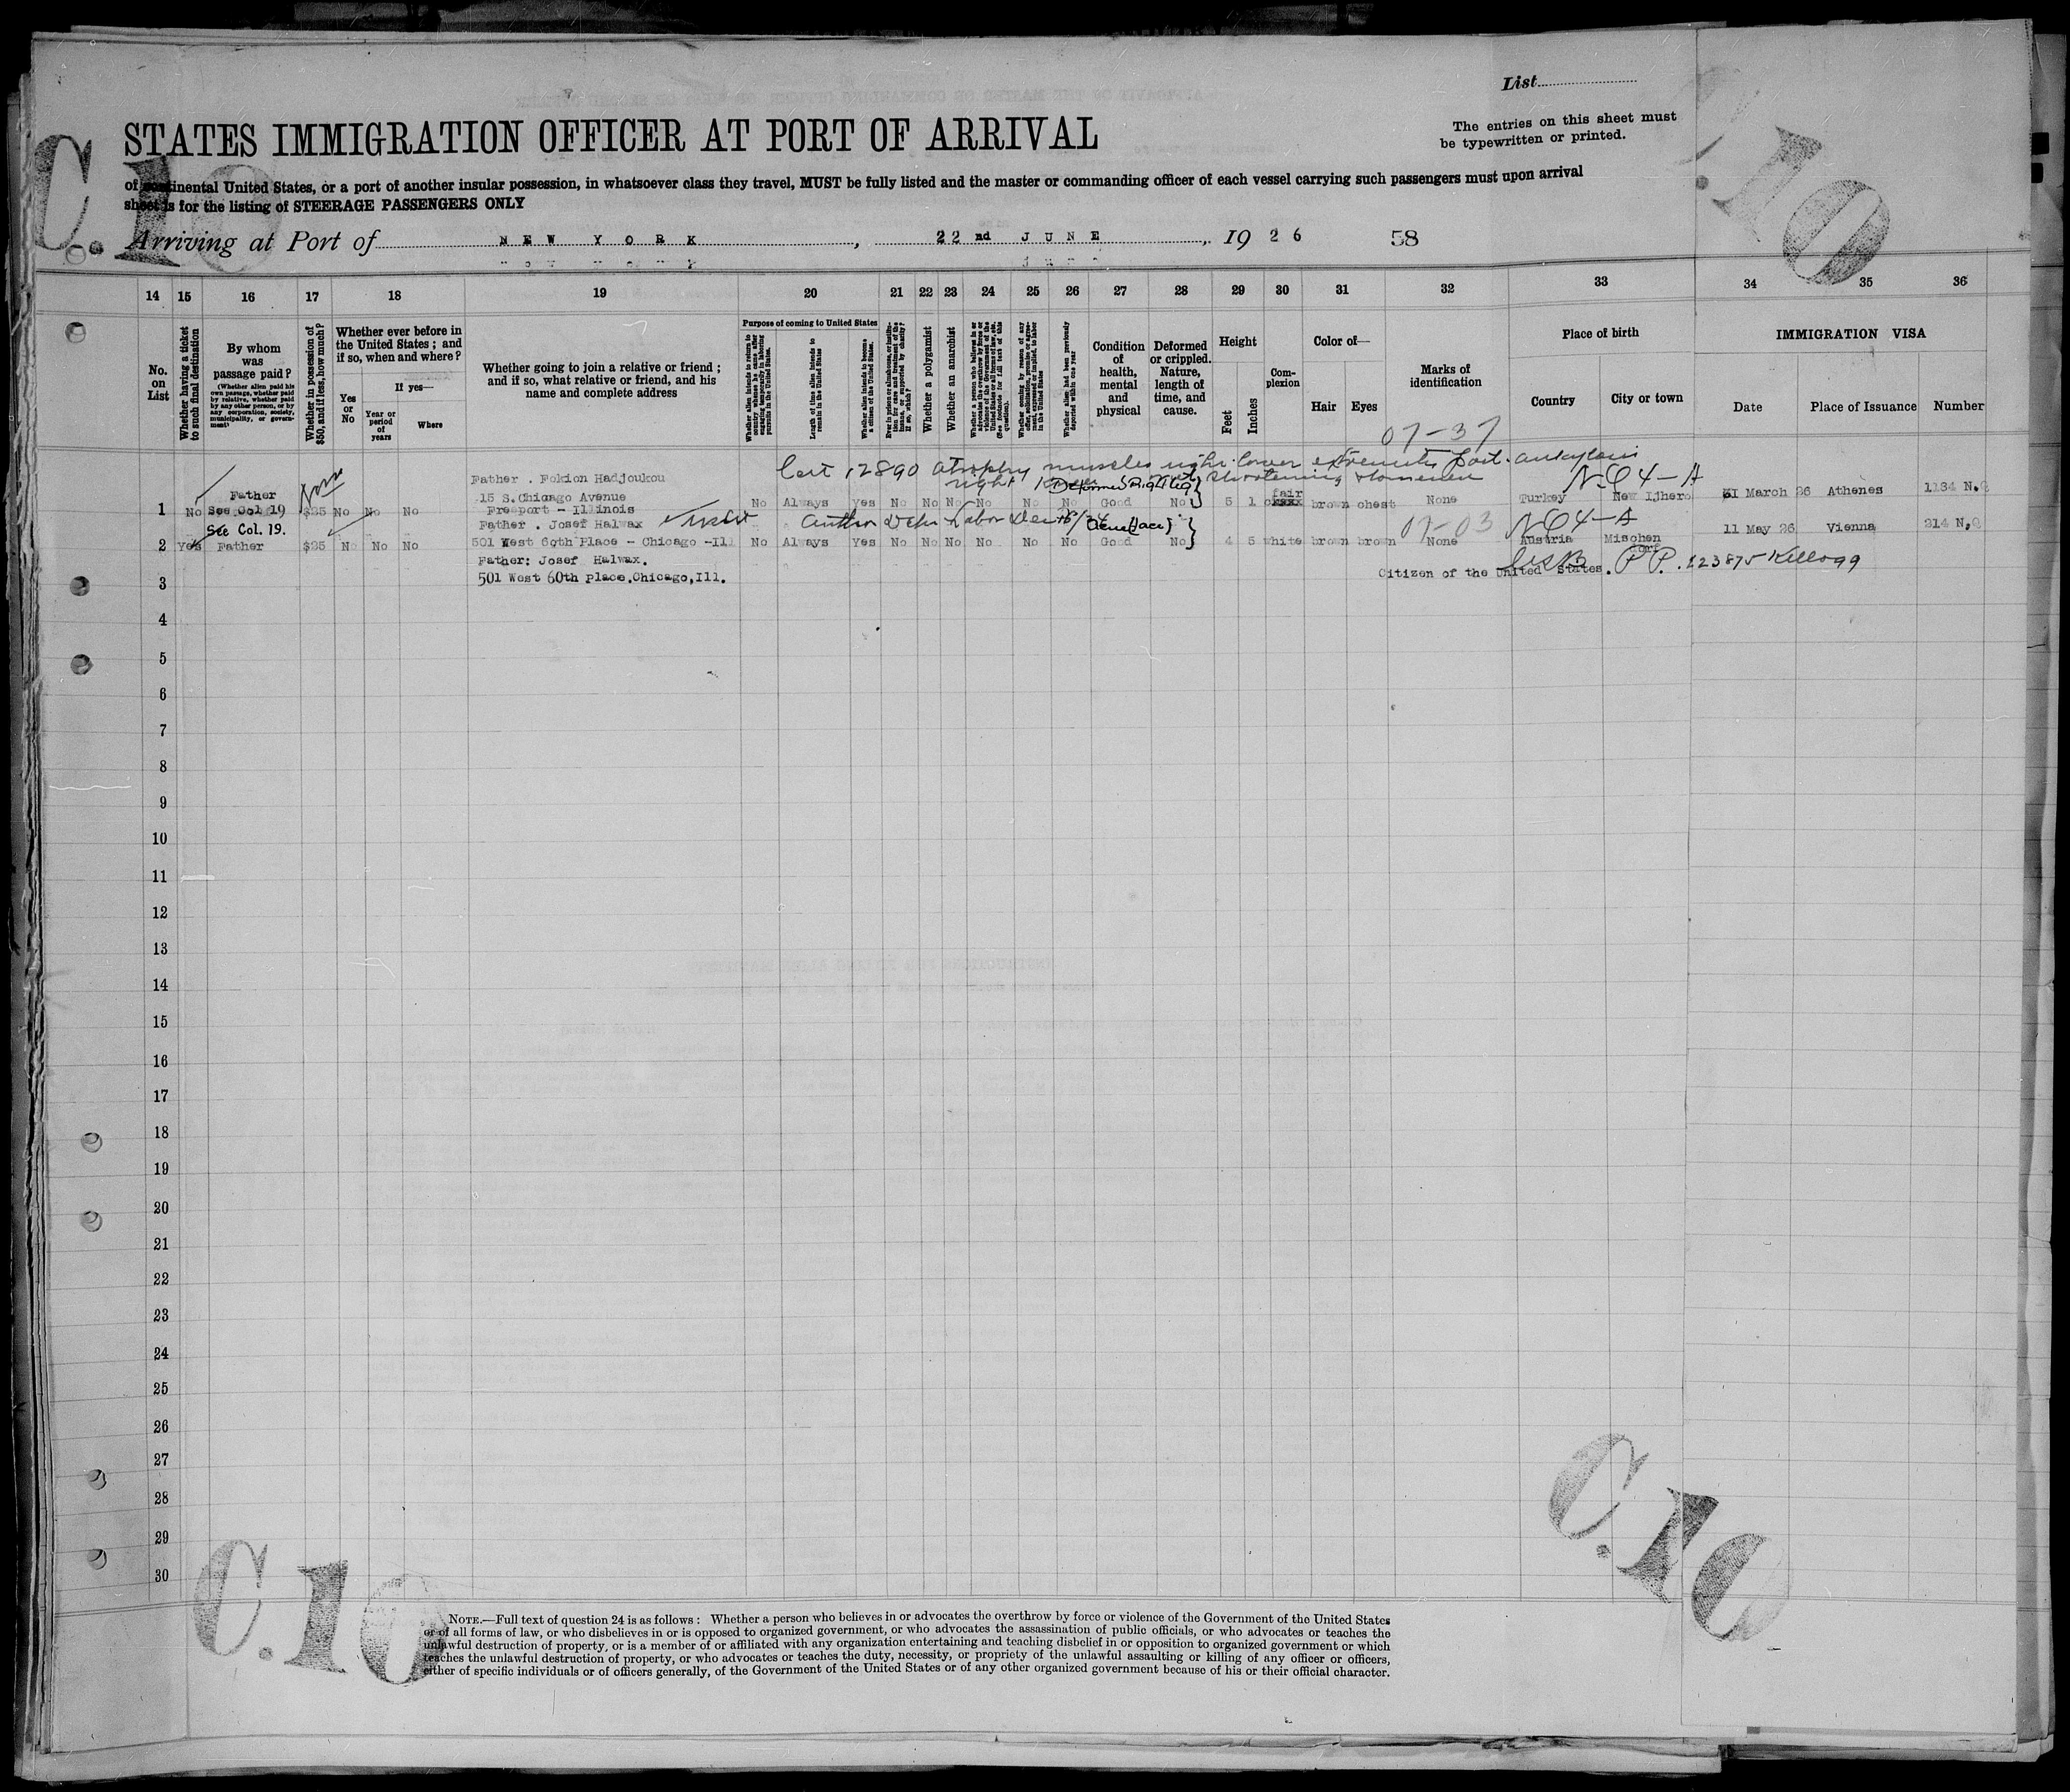 List
STATES IMMIGRATION OFFICER AT PORT OF ARRIVAL
The entries on this sheet must
be typewritten or printed.
of continental United States, or a port of another insular possession, in whatsoever class they travel, MUST be fully listed and the master or commanding officer of each vessel carrying such passengers must upon arrival
sheet is for the listing of STEERAGE PASSENGERS ONLY
C.10
C.10
Arriving at Port of NEW YORK, 22nd JUNE, 1926 58
14 15 16 17 18 19 20 21 22 23 24 25 26 27 28 29 30 31 32 33 34 35 36
No. on List
Whether having a ticket to such final destination
By whom was passage paid?
(Whether alien paid his own passage, whether paid by relative, whether paid by any other person, or by any corporation, society, municipality, or government)
Whether in possession of $50, and if less, how much?
Whether ever before in the United States; and if so, when and where?
Yes or No
If yes—
Year or period of years
Where
Whether going to join a relative or friend; and if so, what relative or friend, and his name and complete address
Purpose of coming to United States
Length of time alien intends to remain in the United States
Whether alien intends to become a citizen of the United States.
Whether a polygamist
Whether an anarchist
Whether alien had been previously deported within one year
Condition of health, mental and physical
Deformed or crippled. Nature, length of time, and cause.
Height
Feet
Inches
Complexion
Color of—
Hair
Eyes
Marks of identification
Place of birth
Country
City or town
IMMIGRATION VISA
Date
Place of Issuance
Number
07-37
Father . Fokion Hadjoukou
Cert 12890 atrophy muscles right lower extremity
right knee shortening
Deformed Right leg
NQ4-A
1 No Father See Col 19 $25 No No No 15 S.Chicago Avenue No Always Yes No No No No No No Good No 5 1 fair brown chest None Turkey March 26 Athenes 1184 N.Q
Freeport - Illinois
See Col. 19.
Father . Josef Halwax
07-03 NQ4-A
2 Yes Father $25 No No No 501 West 60th Place - Chicago -Ill No Always Yes No No No No No No Good No 4 5 white brown brown None Austria Mischendorf 11 May 26 Vienna 214 N.Q
Father: Josef Halwax.
3 501 West 60th Place.Chicago,Ill. Citizen of the United States. P.P. 123875 Kellogg
4
5
6
7
8
9
10
11
12
13
14
15
16
17
18
19
20
21
22
23
24
25
26
27
28
29
30
C.10
C.10
NOTE.—Full text of question 24 is as follows: Whether a person who believes in or advocates the overthrow by force or violence of the Government of the United States
or of all forms of law, or who disbelieves in or is opposed to organized government, or who advocates the assassination of public officials, or who advocates or teaches the
unlawful destruction of property, or is a member of or affiliated with any organization entertaining and teaching disbelief in or opposition to organized government or which
teaches the unlawful destruction of property, or who advocates or teaches the duty, necessity, or propriety of the unlawful assaulting or killing of any officer or officers,
either of specific individuals or of officers generally, of the Government of the United States or of any other organized government because of his or their official character.